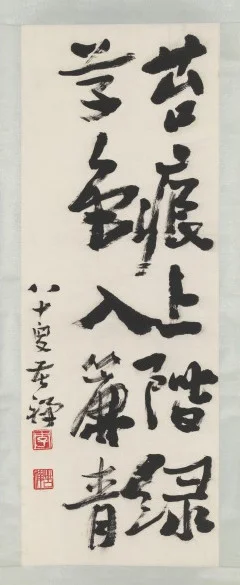 苔痕上階綠
草色入簾青
八十叟苦禪